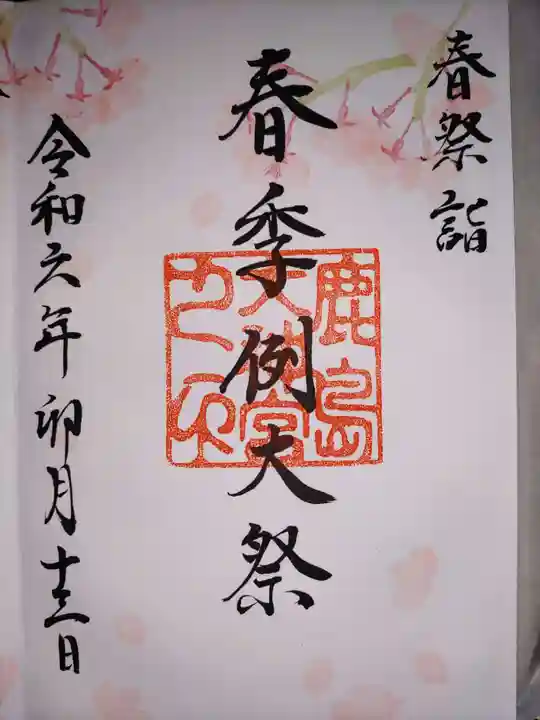 春祭詣
春季例大祭
鹿島
大神宮
之印
令和六年卯月十三日